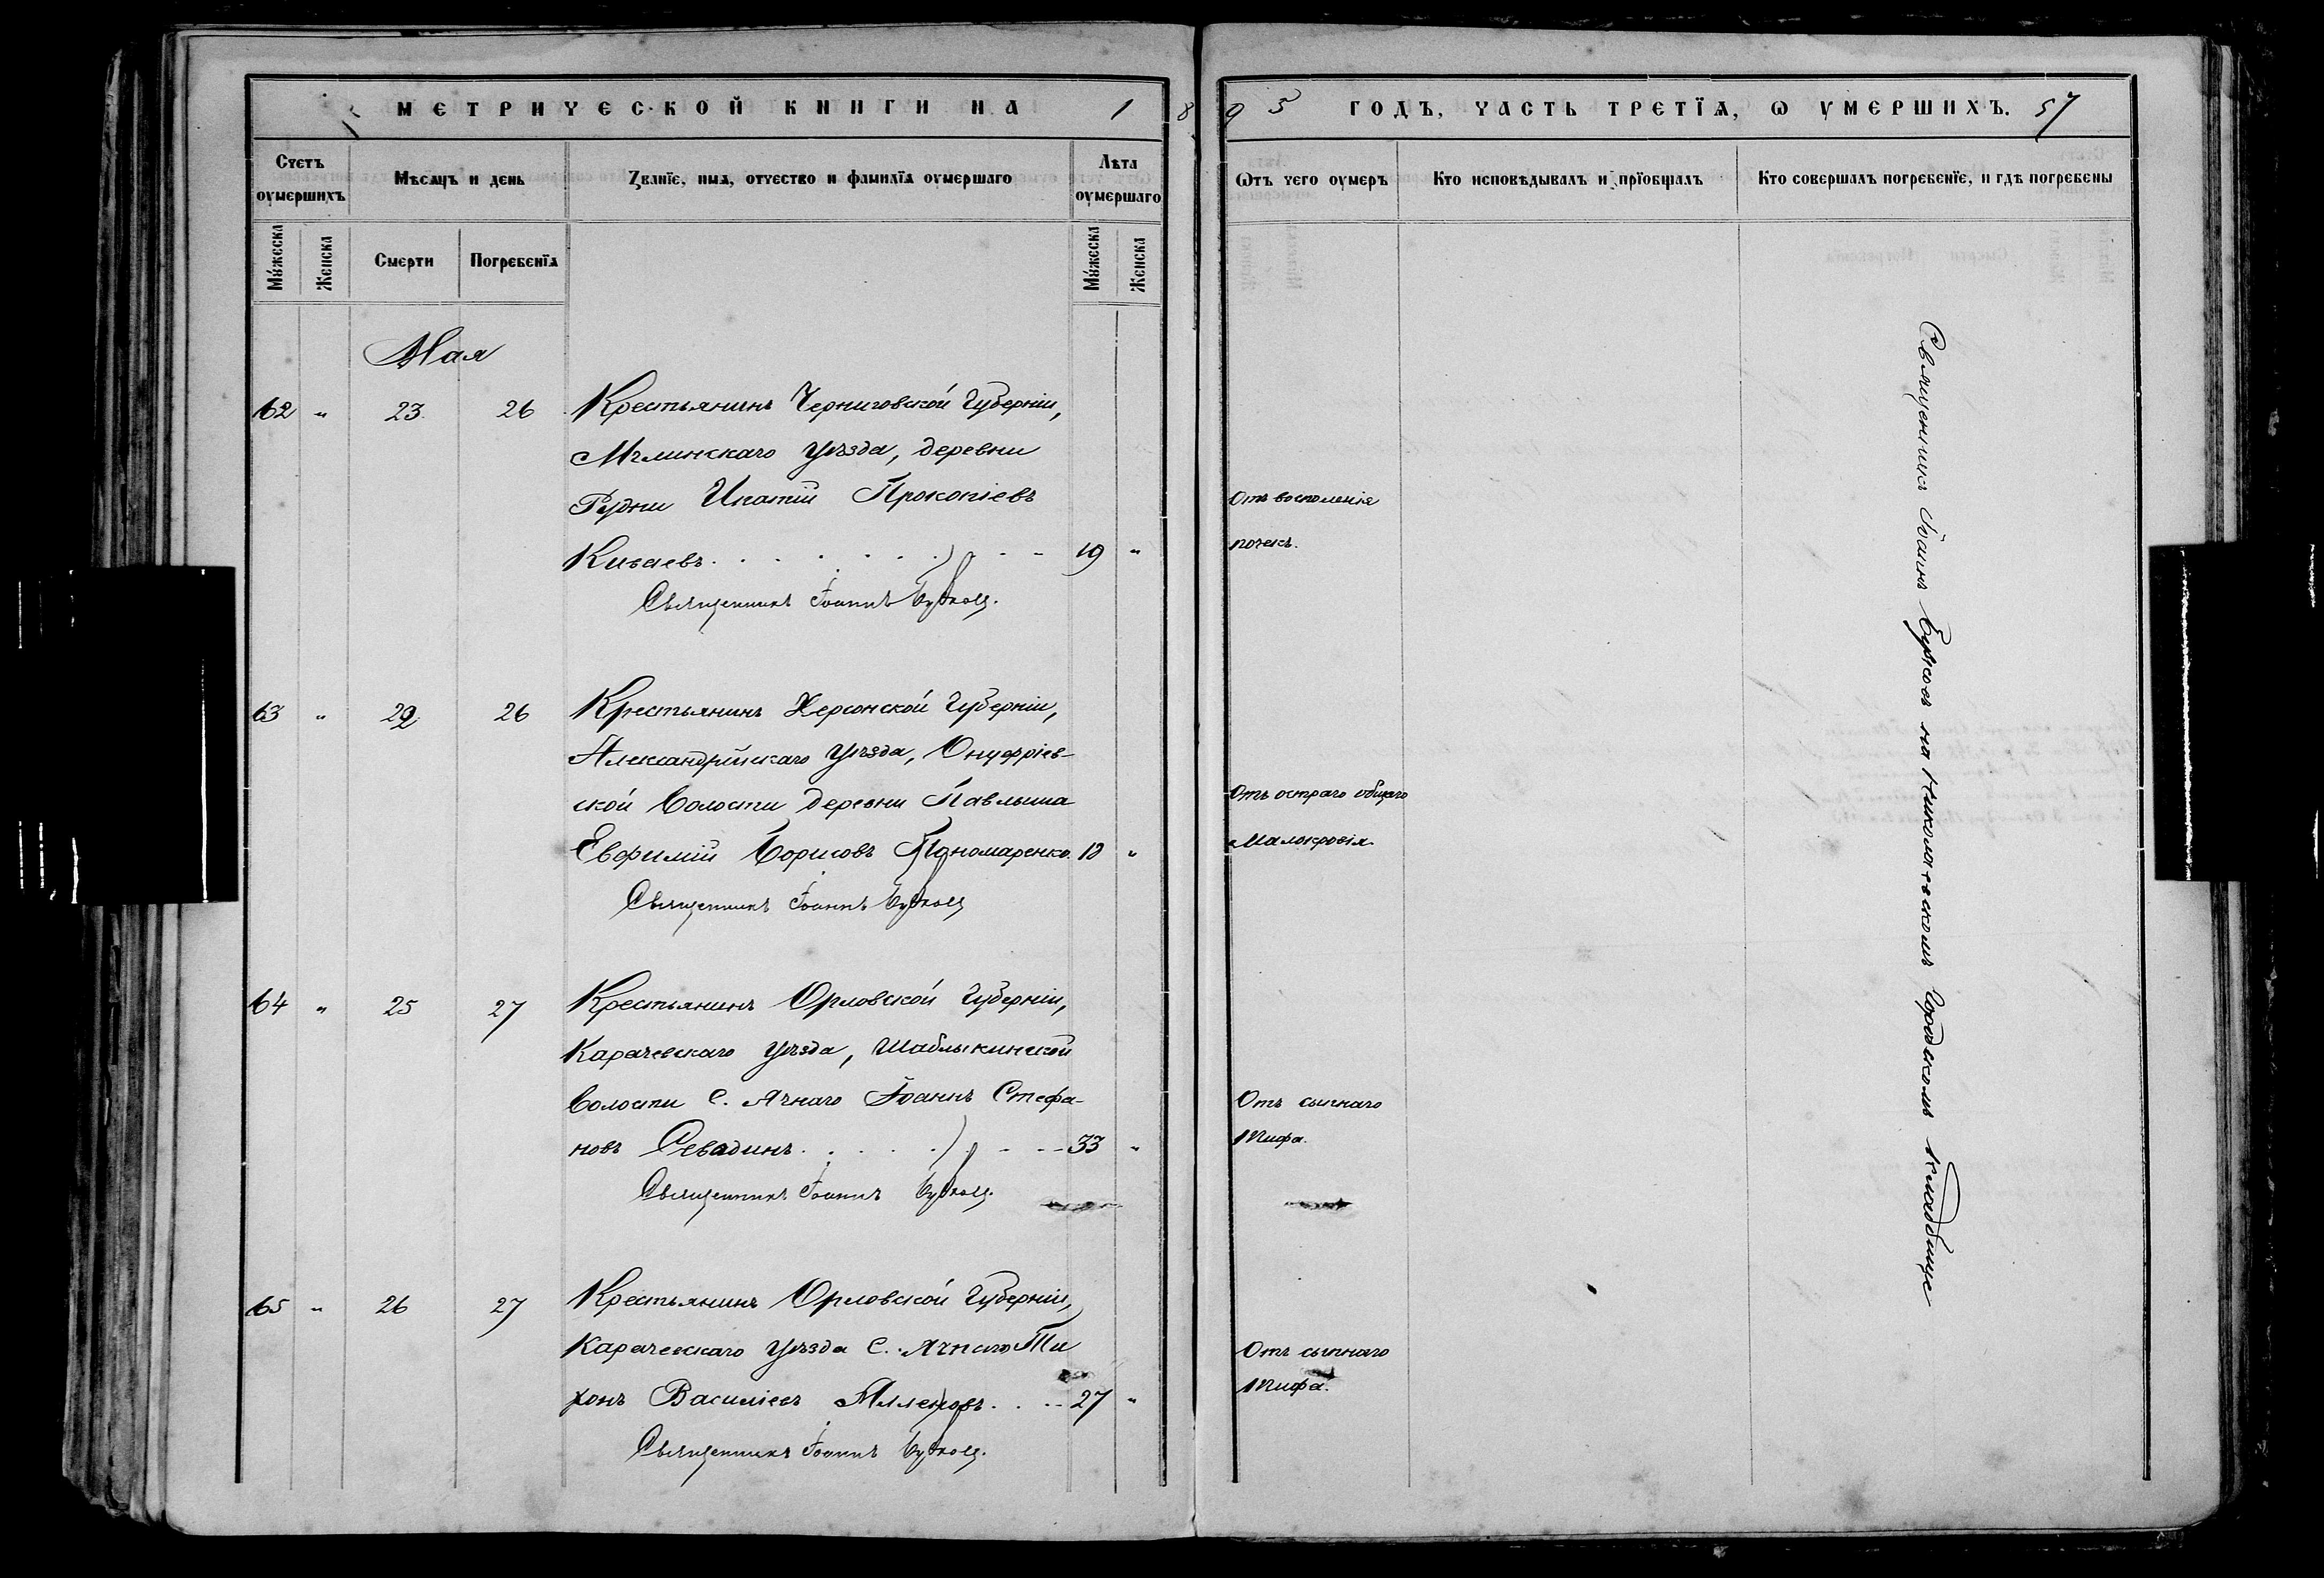 МЕТРИЧЕСКОЙ КНИГИ НА 1895 ГОДЪ, ЧАСТЬ ТРЕТІЯ, Ѡ УМЕРШИХЪ. 57
Счетъ оумершихъ
Мѣсяцъ и день
Званіе, имя, отчество и фамилія оумершаго
Лѣта оумершаго
Ѿтъ чего оумеръ
Кто исповѣдывалъ и пріобщалъ
Кто совершалъ погребеніе, и гдѣ погребены
Мужеска
Женска
Смерти
Погребенія
Мужеска
Женска
Мая
62 " 23 26 Крестьянинъ Черниговской Губерніи,
Мглинскаго уѣзда, деревни
Рудни Ипатій Прокопіевъ
Отъ воспаленія
Кизаевъ. 19 "
почекъ.
Священникъ Іоаннъ
63 " 22 26 Крестьянинъ Херсонской Губерніи,
Александрійскаго уѣзда, Онуфріев-
ской Волости деревни Павлыша
Отъ остраго общаго
Евфимій Борисовъ Пономаренко. "
малокровія
Священникъ Іоаннъ
64 " 25 27 Крестьянинъ Орловской Губерніи,
Карачевскаго уѣзда, Шаблыкинской
Волости С. Ячнаго Іоаннъ Стефа-
Отъ сыпнаго
новъ Севадинъ. 33 "
тифа.
Священникъ Іоаннъ
65 " 26 27 Крестьянинъ Орловской Губерніи,
Карачевскаго уѣзда С. Ячнаго Ти
Отъ сыпнаго
хонъ Василіевъ 27 "
тифа.
Священникъ Іоаннъ
Священникъ Іоаннъ на Николаевскомъ Городскомъ Кладбище